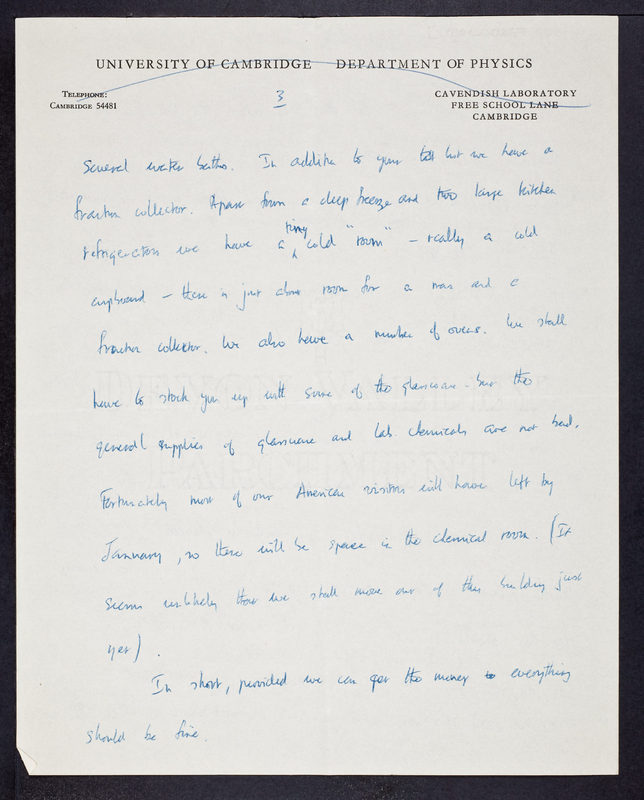 UNIVERSITY OF CAMBRIDGE DEPARTMENT OF PHYSICS
TELEPHONE:
CAMBRIDGE 54481
3
CAVENDISH LABORATORY
FREE SCHOOL LANE
CAMBRIDGE
several water baths. In addition to your list we have a
fraction collector. Apart from a deep freeze and two large kitchen
refrigerators we have a tiny cold "room" – really a cold
cupboard – there is just about room for a man and a
fraction collector. We also have a number of ovens. We shall
have to stock you up with some of the glassware – but the
general supplies of glassware and lab. chemicals are not bad.
Fortunately most of our American visitors will have left by
January, so there will be space in the chemical room. (It
seems unlikely that we shall move out of this building just
yet).
In short, provided we can get the money everything
should be fine.